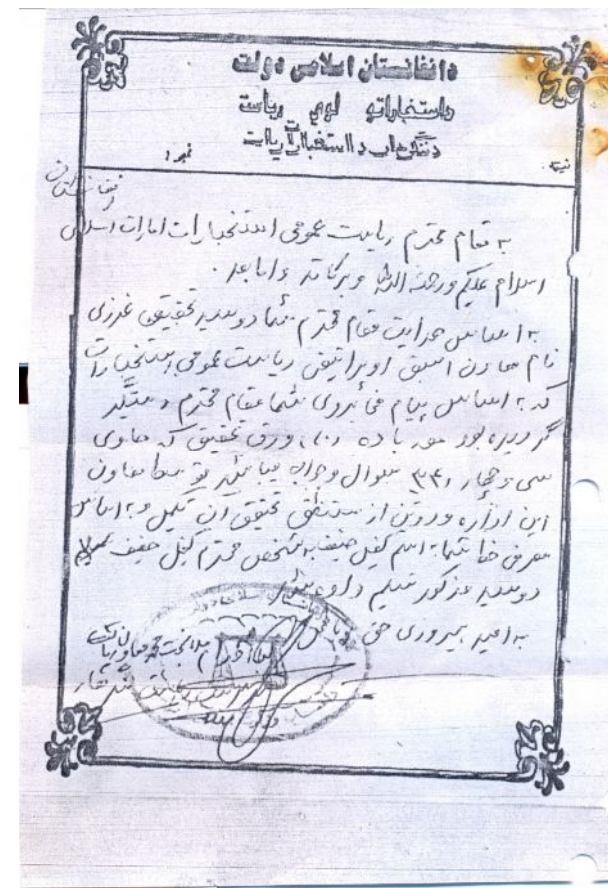 دافغانستان اسلامی دولت
داستخباراتو لوی ریاست
دننگرهار د استخباراتو ریاست
نمبر:
نیټه:
به مقام محترم ریاست عمومی استخبارات امارات اسلامی
اسلام علیکم ورحمة الله وبرکاته و اما بعد.
به اساس هدایت مقام محترم شما دوسیه تحقیقی غرزی
نام معاون اسبق اوپراتیفی ریاست عمومی استخبارات
که به اساس پیام مخابروی شما مقام محترم دستگیر
گردیده بود مورد با ده (۱۰) ورق تحقیق که حاوی
سی و چهار (۳۴) سوال و جواب میباشد تو سط معاون
این اداره و
تحقیق آن تکمیل و به اساس
معرفی خط شما به اسم کفیل حنیف به شخص محترم کفیل حنیف
دوسیه مذکور تسلیم داده شد
به امید پیروزی حق